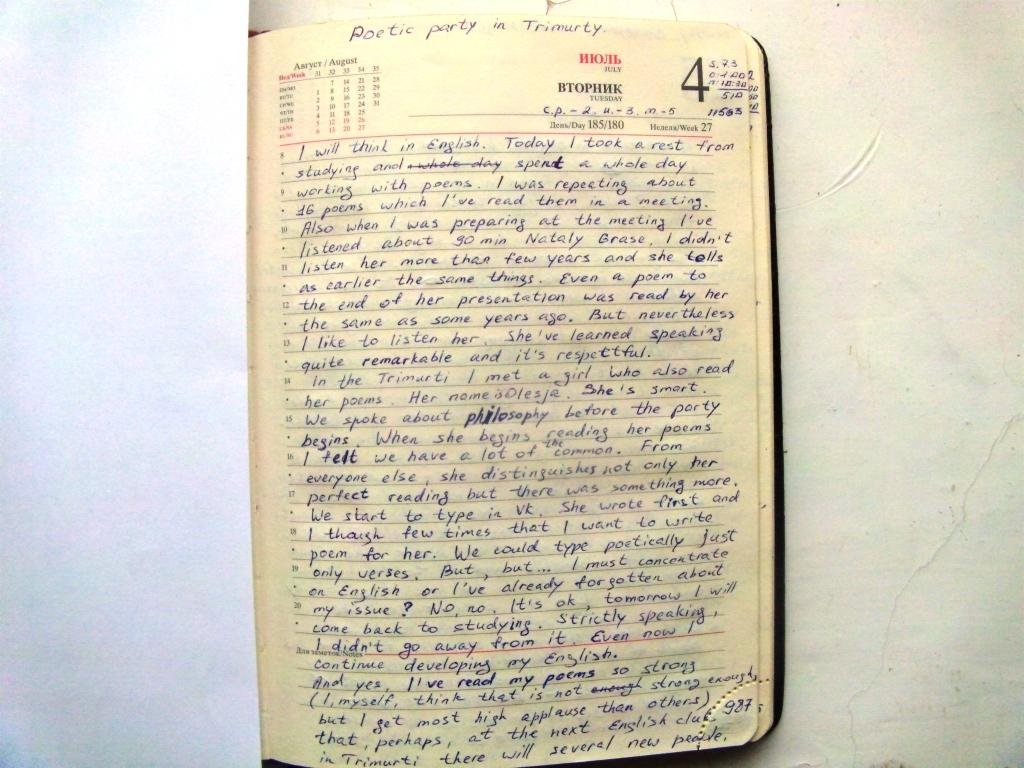 Poetic party in Trimurty.
Август / August
Нед/Week 31 32 33 34 35
ПН/MO 7 14 21 28
ВТ/TU 1 8 15 22 29
СР/WE 2 9 16 23 30
ЧТ/TH 3 10 17 24 31
ПТ/FR 4 11 18 25
СБ/SA 5 12 19 26
ВС/SU 6 13 20 27
ИЮЛЬ
JULY
ВТОРНИК
TUESDAY
4
5.7.3
11563
с.р. - 2, и. - 3, т. - 5
День/Day 185/180 Неделя/Week 27
8 I will think in English. Today I took a rest from
studying and a whole day spent a whole day
9 working with poems. I was repeating about
16 poems which I've read them in a meeting.
10 Also when I was preparing at the meeting I've
listened about 90 min Nataly Grase. I didn't
11 listen her more than few years and she tells
as earlier the same things. Even a poem to
12 the end of her presentation was read by her
the same as some years ago. But nevertheless
13 I like to listen her. She've learned speaking
quite remarkable and it's respettful.
14 In the Trimurti I met a girl who also read
her poems. Her name is Olesja. She's smart.
15 We spoke about philosophy before the party
begins. When she begins reading her poems
16 I felt we have a lot of the common. From
everyone else, she distinguishes not only her
17 perfect reading but there was something more.
We start to type in VK. She wrote first and
18 I though few times that I want to write
poem for her. We could type poetically just
19 only verses. But, but... I must concentrate
on English or I've already forgotten about
20 my issue? No, no. It's ok, tomorrow I will
come back to studying. Strictly speaking,
I didn't go away from it. Even now I
Для заметок/Notes
continue developing my English.
And yes, I've read my poems so strong
(I, myself, think that is not enough strong enough,
but I get most high applause than others)
that, perhaps, at the next English club
in Trimurti there will several new people.
987